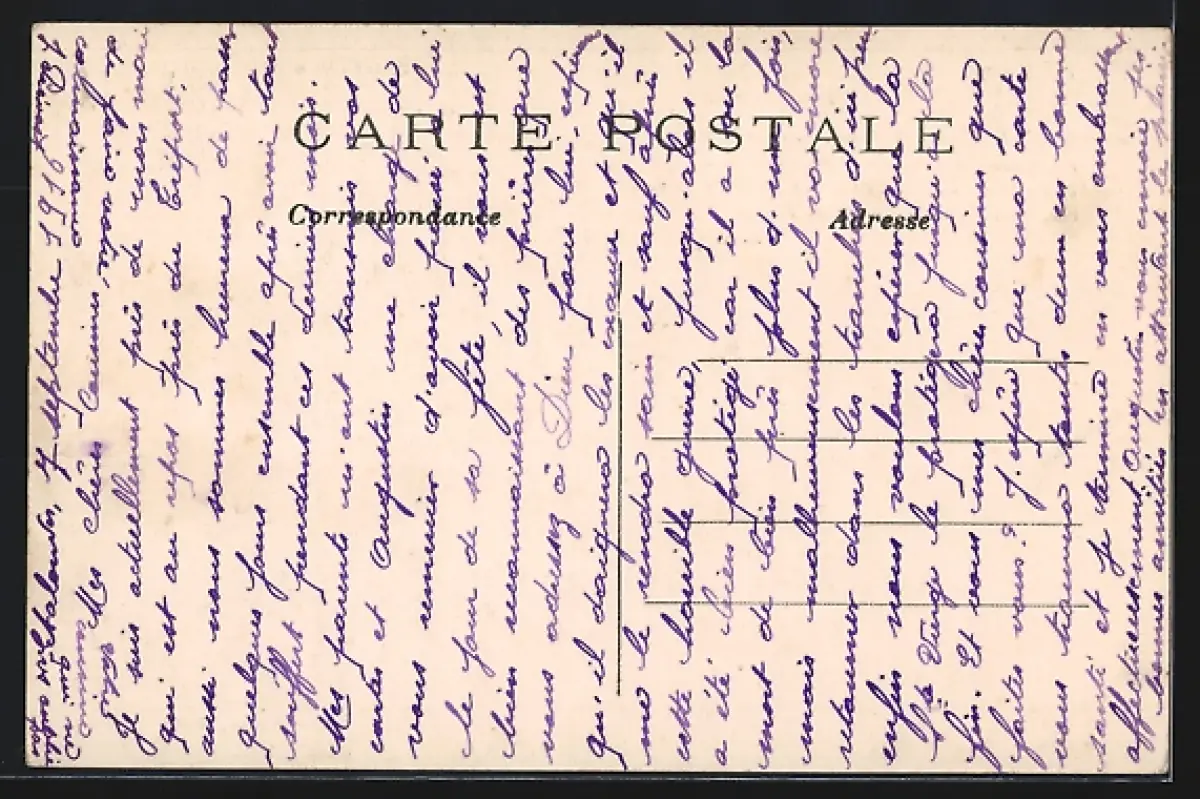 CARTE POSTALE
Correspondance
Adresse
Chalons, 7 Septembre 1916
Mes chères Cousines,
Je suis actuellement près de mon mari
qui est au repos près du Tréport.
aussi nous sommes heureux de passer
quelques jours ensemble après avoir tant
souffert pendant ces derniers mois.
Mes parents m'ont transmis vos
cartes et Augustin me charge de
vous remercier d'avoir pensé à lui
le jour de sa fête, il vous est
bien reconnaissant des prières que
vous adressez à Dieu pour lui, espérons
qu'il daignera les exaucer et qu'il
me le rendra sain et sauf après
cette horrible guerre, jusqu'alors il
a été bien protégé car il a vu la
mort de bien près plus d'une fois,
mais malheureusement il va encore
retourner dans les tranchées d'ici peu
enfin nous voulons espérer que la
Ste Vierge le protégera jusqu'à la
fin. Et vous mes chères cousines que
faites vous? J'espère que ma carte
vous trouvera toutes deux en bonne
santé et je termine en vous embrassant
affectueusement Augustin vous envoie ses
bonnes amitiés en attendant le plaisir